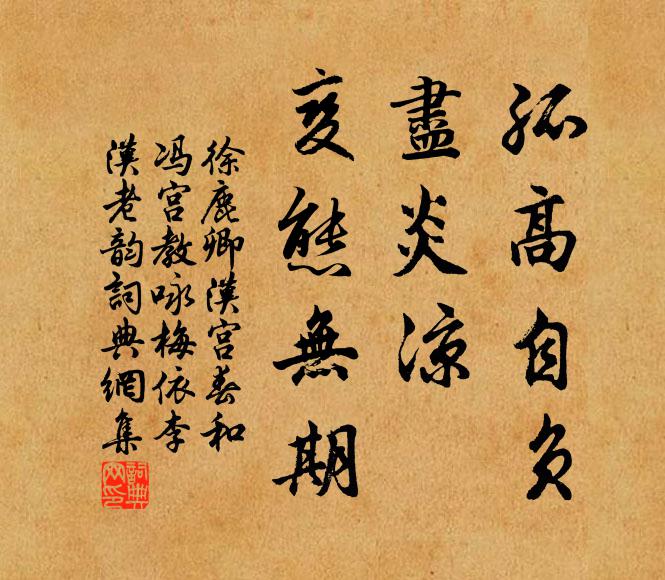 孤高自负
盡炎涼
変熊無期
徐鹿卿漢宮春和
冯宫教咏梅依李
漢老韵詞典網集
詞典网印